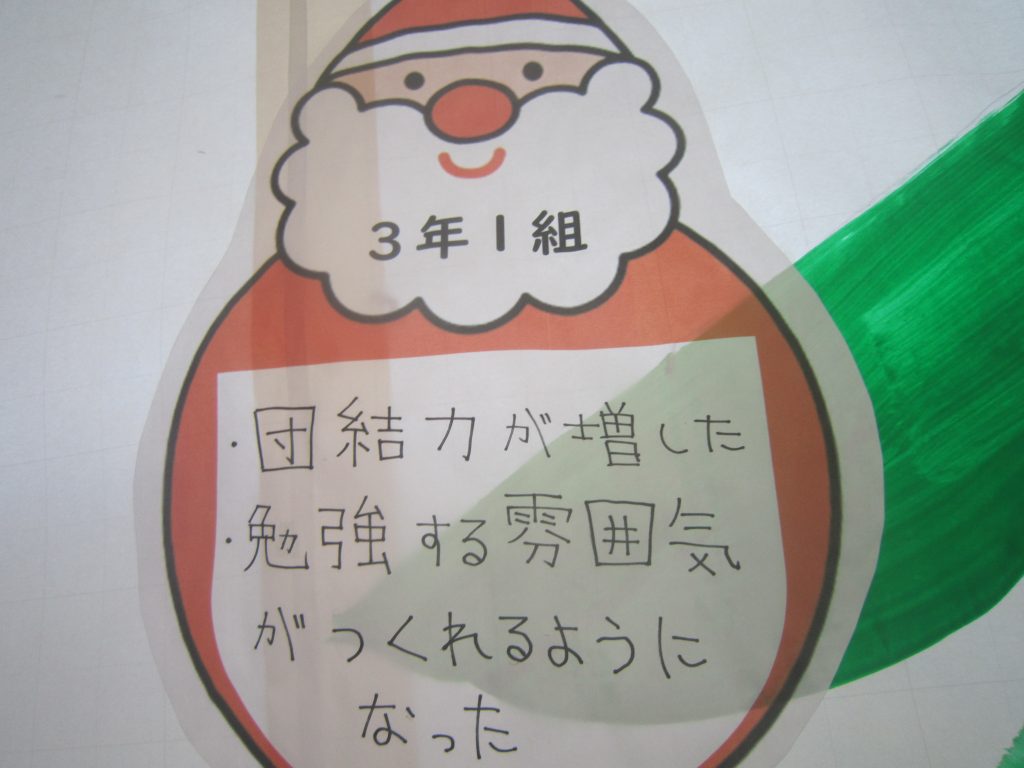 3年1組
・団結力が増した
・勉強する雰囲気
がつくれるように
なった